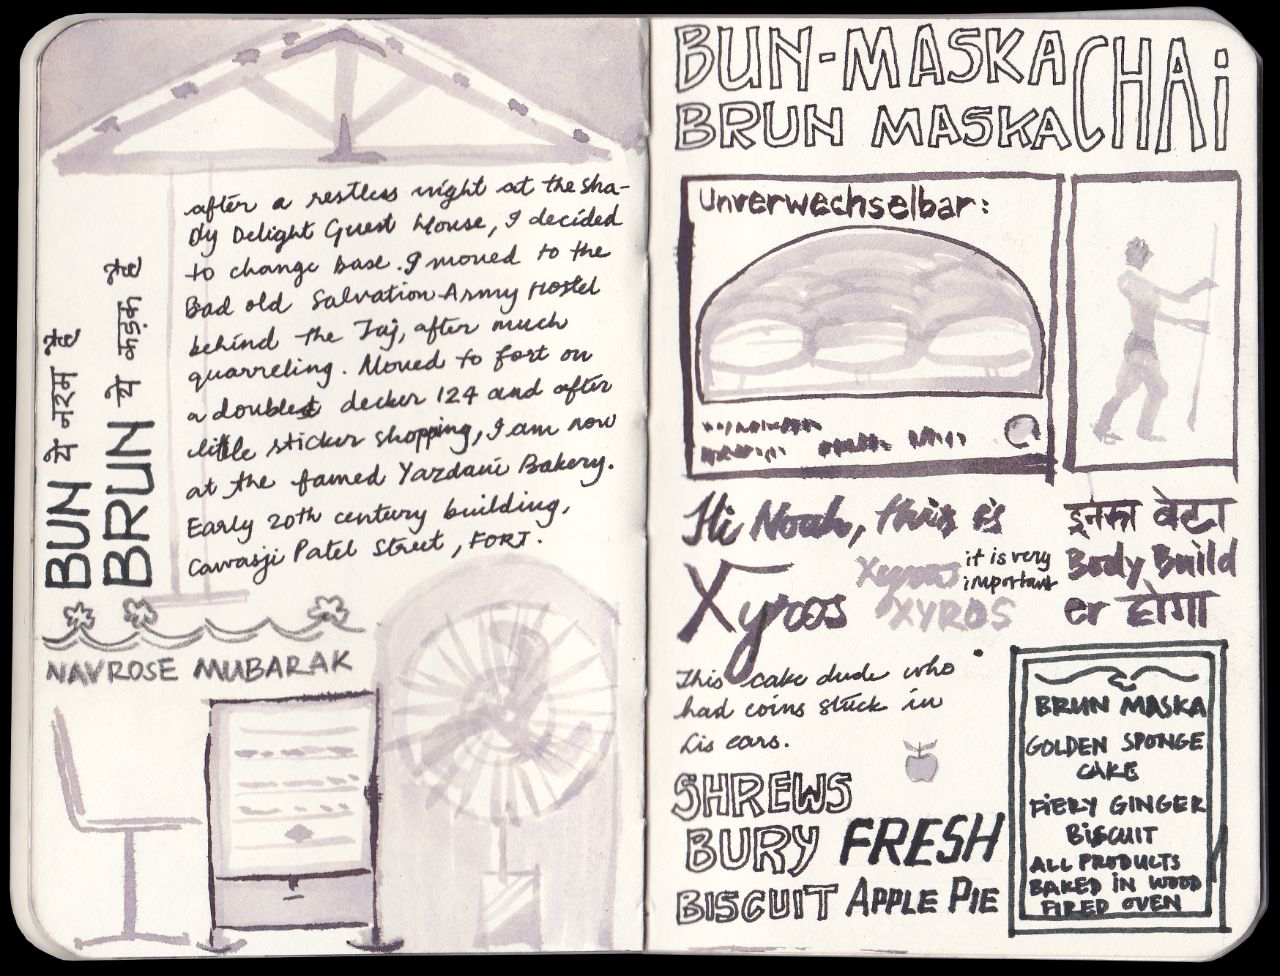 after a restless night at the Sha-
dy Delight Guest House, I decided
to change base. I moved to the
Bad old Salvation Army Hostel
behind the Taj, after much
quarreling. Moved to fort on
a double decker 124 and after
little sticker shopping, I am now
at the famed Yazdani Bakery.
Early 20th century building,
Cawasji Patel Street, FORT.
BUN ये नरम है
BRUN ये कड़क है
NAVROSE MUBARAK
BUN-MASKA
BRUN MASKA
CHAi
Unverwechselbar:
Hi Noah, this is
Xyros
Xyros
it is very
important
XYROS
इनका बेटा
Body Build
er होगा
This cake dude who
had coins stuck in
his ears.
SHREWS
BURY
BISCUIT
FRESH
APPLE PIE
BRUN MASKA
GOLDEN SPONGE
CAKE
FIERY GINGER
BISCUIT
ALL PRODUCTS
BAKED IN WOOD
FIRED OVEN